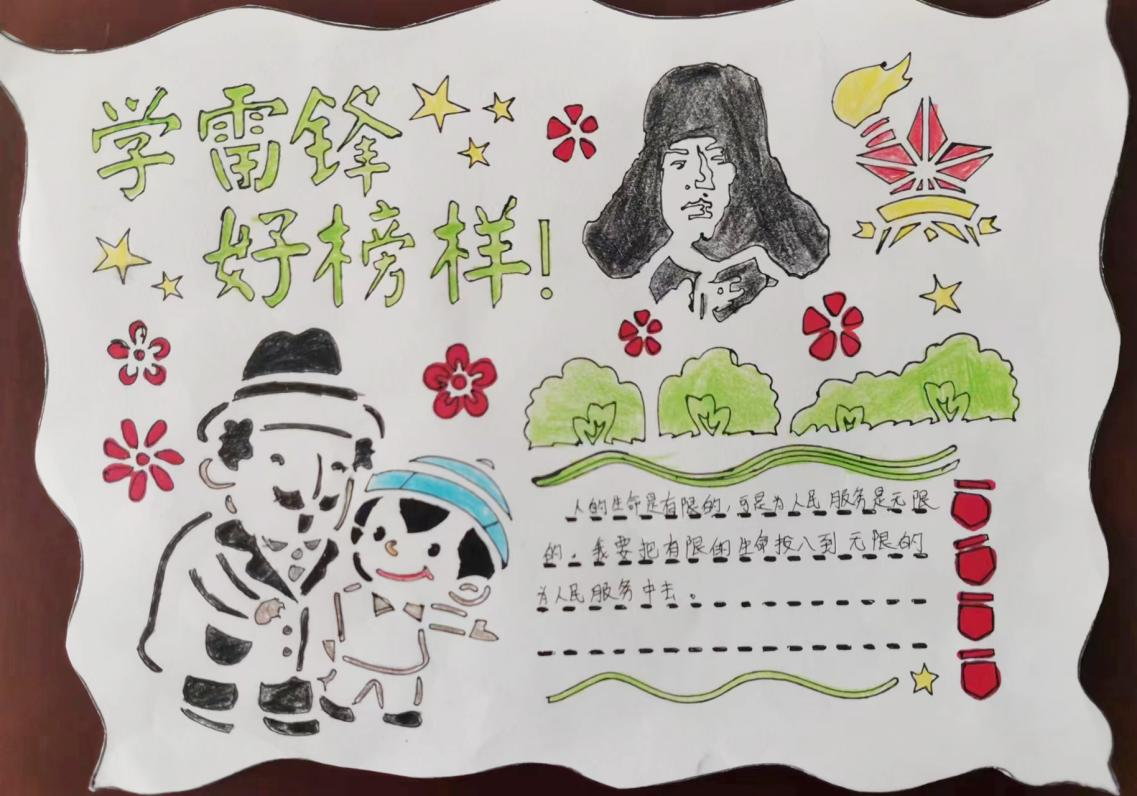 学雷锋
好榜样!
人的生命是有限的,可是为人民服务是无限
的。我要把有限的生命投入到无限的
为人民服务中去。